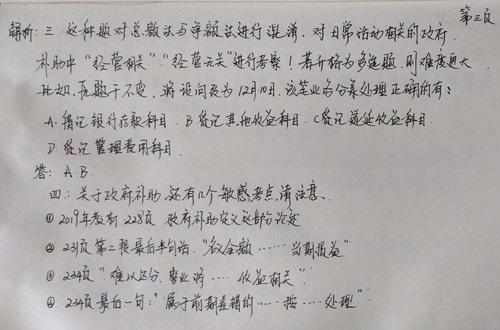 第三页
解析:三.这种题对总额法与净额法进行混淆,对日常活动相关的政府
补助中"经营相关""经营无关"进行考察!若升格为多选题,则难度更大.
比如,原题干不变,将设问改为12月10日,该笔业务分录处理正确的有:
A.借记银行存款科目.B贷记其他收益科目.C贷记递延收益科目.
D.贷记管理费用科目.
答:A.B.
四.:关于政府补助,还有几个敏感考点,请注意.
①2019年教材228页.政府补助定义这部分论述
②231页第二段最后半句话."名义金额……当期损益"
③234页"难以区分,企业将……收益相关".
④234页最后一句:"属于前期差错的……按……处理".